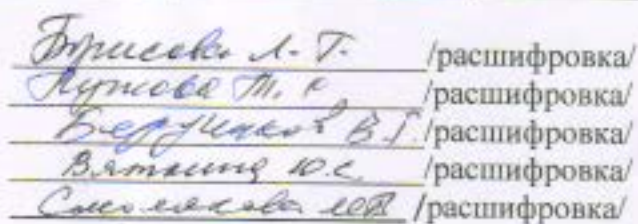 Борисова Л. Т. /расшифровка/
Т. К. /расшифровка/
В. Г. /расшифровка/
Вяткина Ю.С. /расшифровка/
Смолякова М.В. /расшифровка/